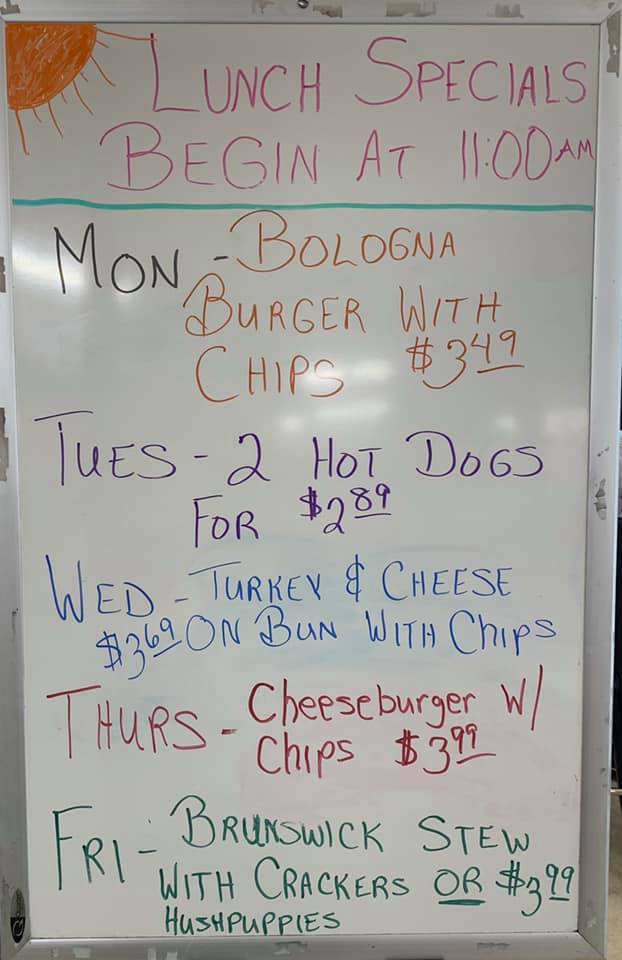 LUNCH SPECIALS
BEGIN AT 11:00AM
MON - BOLOGNA
BURGER WITH
CHIPS $3.49
TUES - 2 HOT DOGS
FOR $2.89
WED - TURKEY & CHEESE
$3.69 ON BUN WITH CHIPS
THURS - Cheeseburger W/
Chips $3.99
FRI - BRUNSWICK STEW
WITH CRACKERS OR $3.99
HUSHPUPPIES